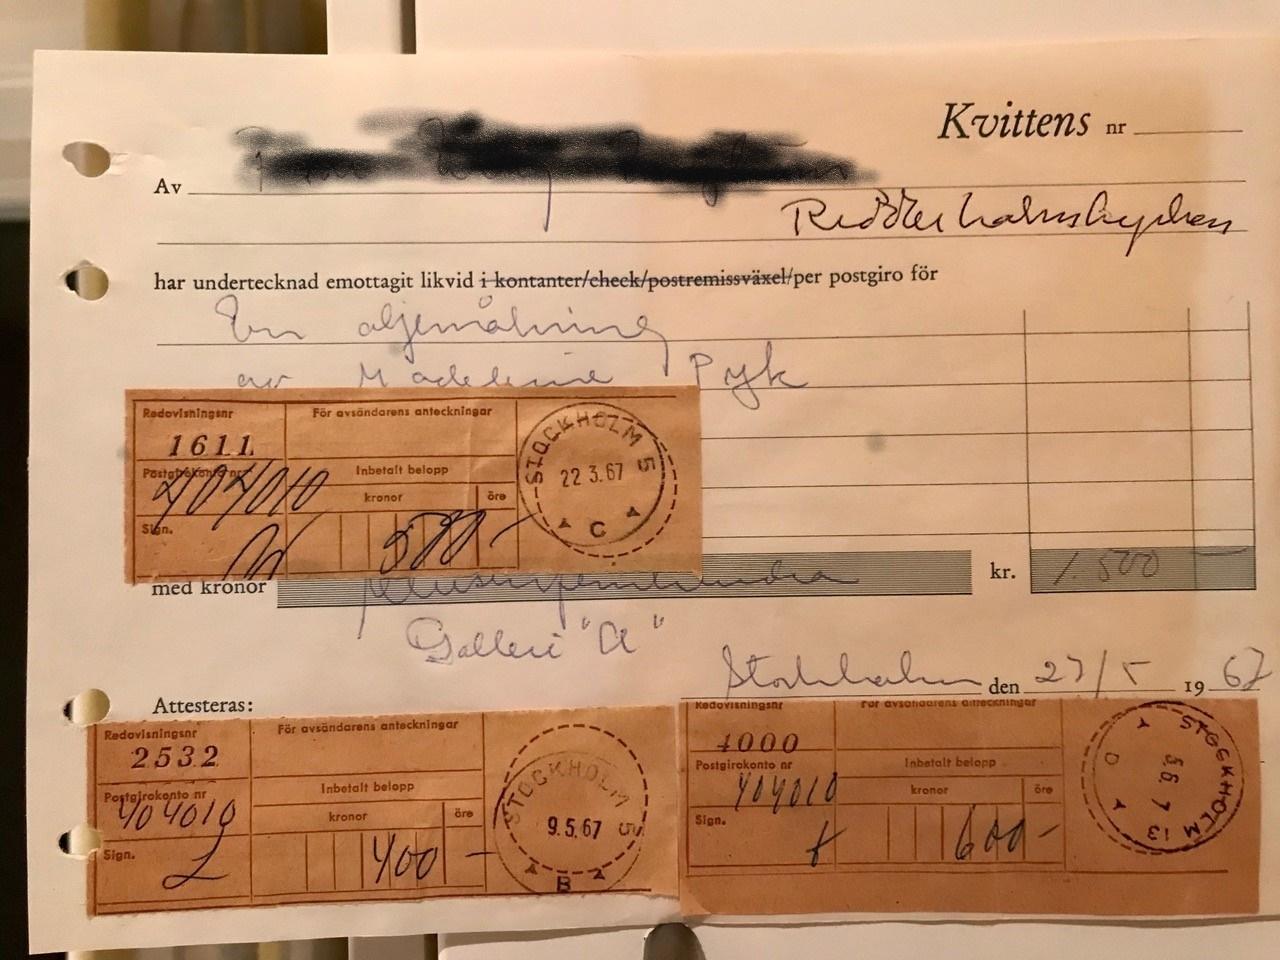 Kvittens nr
Av
Ridderholmskyrkan
har undertecknad emottagit likvid i kontanter/check/postremissväxel/per postgiro för
En oljemålning
av Madeleine Pyk
Redovisningsnr
För avsändarens anteckningar
1611
Postgirokonto nr
Inbetalt belopp
404010
kronor öre
Sign.
500 -
STOCKHOLM 5
22.3.67
C
med kronor
kr. 1.500 —
Galleri "A"
Stockholm den 27/5 1967
Attesteras:
Redovisningsnr
För avsändarens anteckningar
2532
Postgirokonto nr
Inbetalt belopp
404010
kronor öre
Sign.
400 -
STOCKHOLM 5
9.5.67
B
Redovisningsnr
För avsändarens anteckningar
1000
Postgirokonto nr
Inbetalt belopp
404010
kronor öre
Sign.
600 -
STOCKHOLM 13